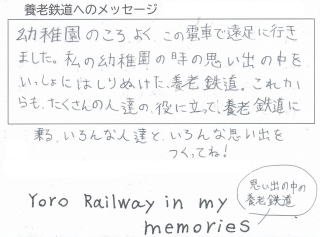 養老鉄道へのメッセージ
幼稚園のころ よく、この電車で遠足に行き
ました。私の幼稚園の時の思い出の中を
いっしょに はしりぬけた、養老鉄道。これか
らも、たくさんの人達の、役に立って、養老鉄道に
乗る、いろんな人達と、いろんな思い出を
つくってね!
思い出の中の
養老鉄道
Yoro Railway in my
memories